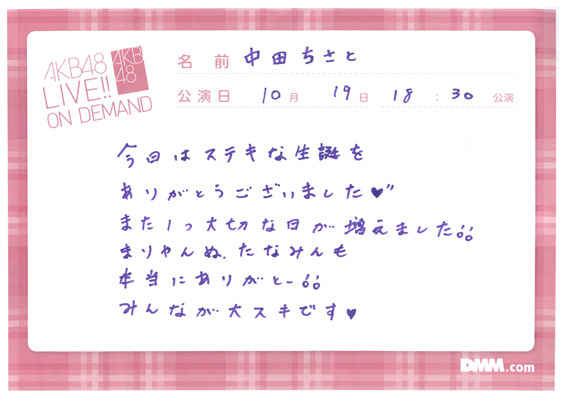 AKB48
LIVE!!
ON DEMAND
AKB
48
名前 中田ちさと
公演日 10月 19日 18:30 公演
今日はステキな生誕を
ありがとうございました♥"
また1つ大切な日が増えました!!
まりやんぬ、たなみんも
本当にありがとー!!
みんなが大スキです♥
DMM.com